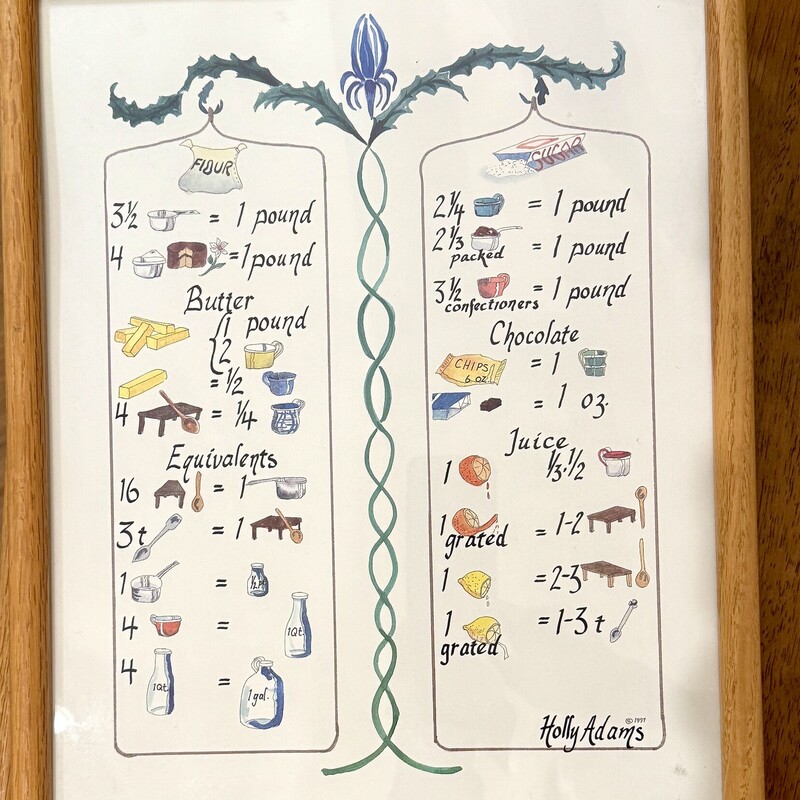 FLOUR
3½ = 1 pound
4 = 1 pound
Butter
1 pound
2
= ½
4 = ¼
Equivalents
16 = 1
3t = 1
1 = ½ Pt.
4 = 1Qt.
4 1Qt. = 1 gal.
SUGAR
2¼ = 1 pound
2⅓ = 1 pound
packed
3½ = 1 pound
confectioners
Chocolate
CHIPS = 1
6 OZ
= 1 oz.
Juice
1 ⅓-½
1 = 1-2
grated
1 = 2-3
1 = 1-3 t
grated
© 1997
Holly Adams